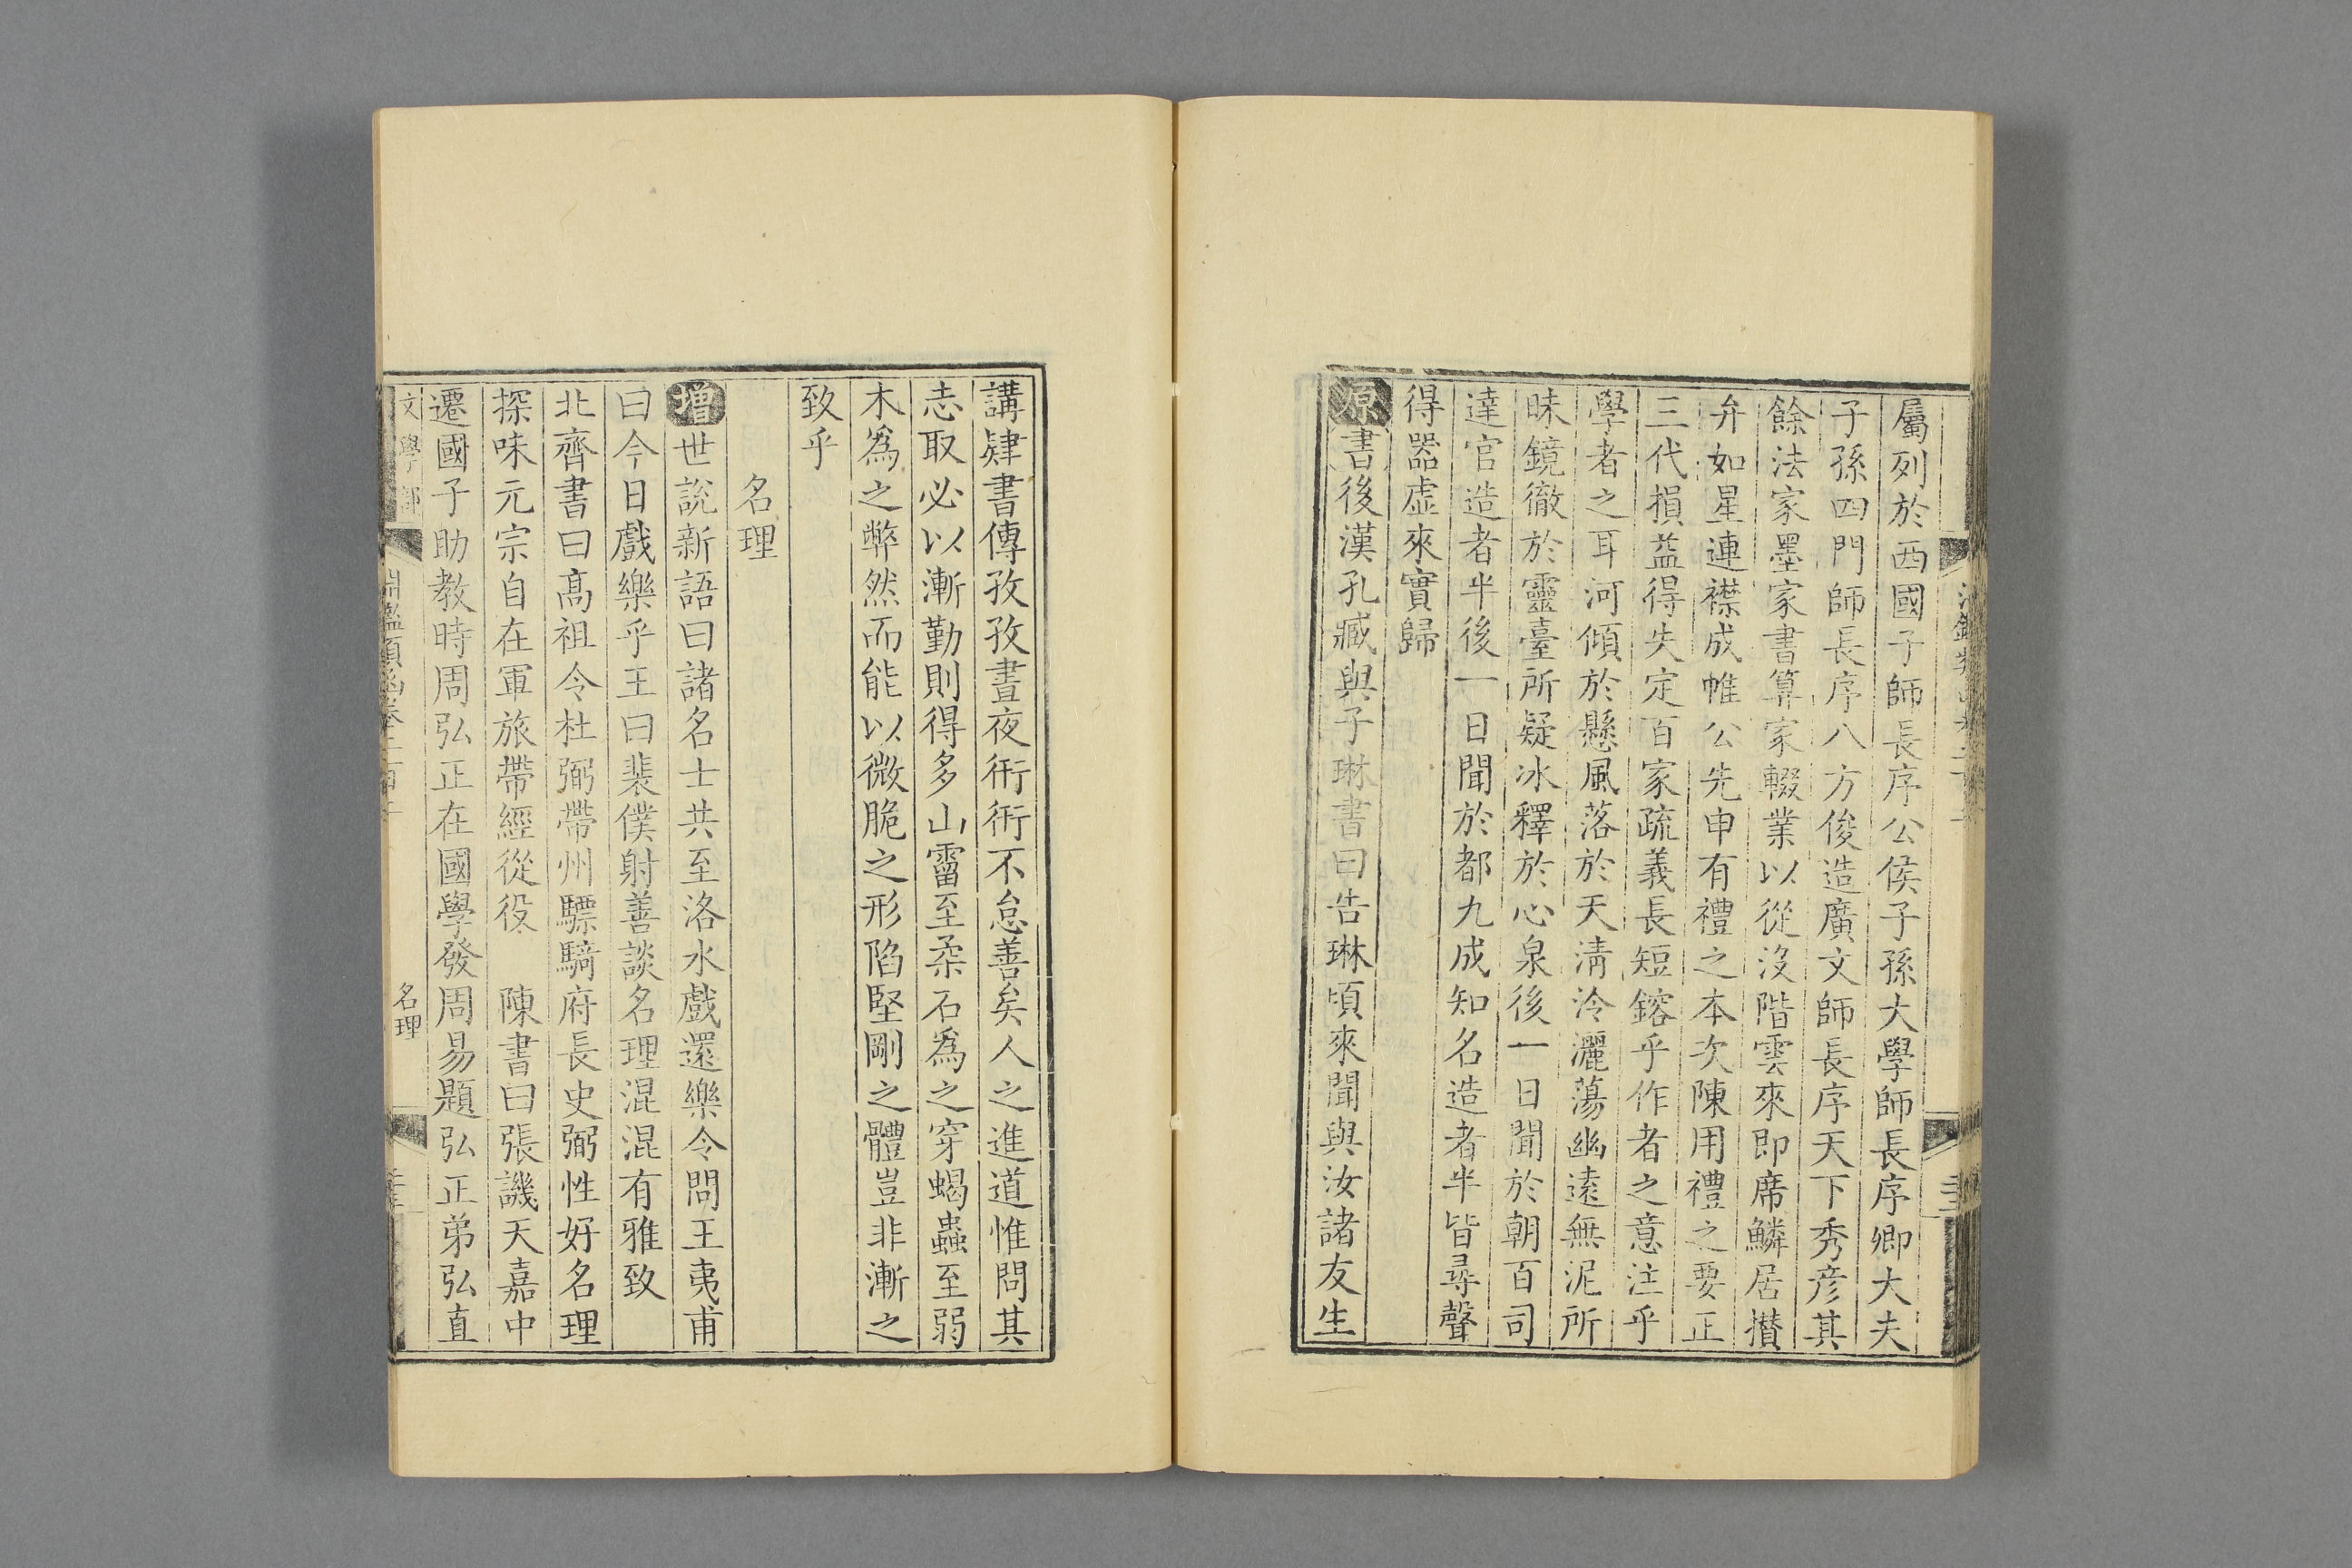 屬列於西國子師長序公侯子孫大學師長序卿大夫
子孫四門師長序八方俊造廣文師長序天下秀彥其
餘法家墨家書算家輟業以從沒階雲來即席鱗居攅
弁如星連襟成帷公先申有禮之本次陳用禮之要正
三代損益得失定百家疏義長短鎔乎作者之意注乎
學者之耳河傾於懸風落於天清泠灑蕩幽遠無泥所
昧鏡徹於靈臺所疑冰釋於心泉後一日聞於朝百司
達官造者半後一日聞於都九成知名造者半皆尋聲
得器虛來實歸
原書後漢孔臧與子琳書曰告琳頃來聞與汝諸友生
講肄書傳孜孜晝夜衎衎不怠善矣人之進道惟問其
志取必以漸勤則得多山霤至柔石爲之穿蝎蟲至弱
木爲之弊然而能以微脆之形陷堅剛之體豈非漸之
致乎
名理
增世說新語曰諸名士共至洛水戲還樂令問王夷甫
曰今日戲樂乎王曰裴僕射善談名理混混有雅致
北齊書曰高祖令杜弼帶州驃騎府長史弼性好名理
探味元宗自在軍旅帶經從役　陳書曰張譏天嘉中
遷國子助教時周弘正在國學發周易題弘正弟弘直
文學部
名理